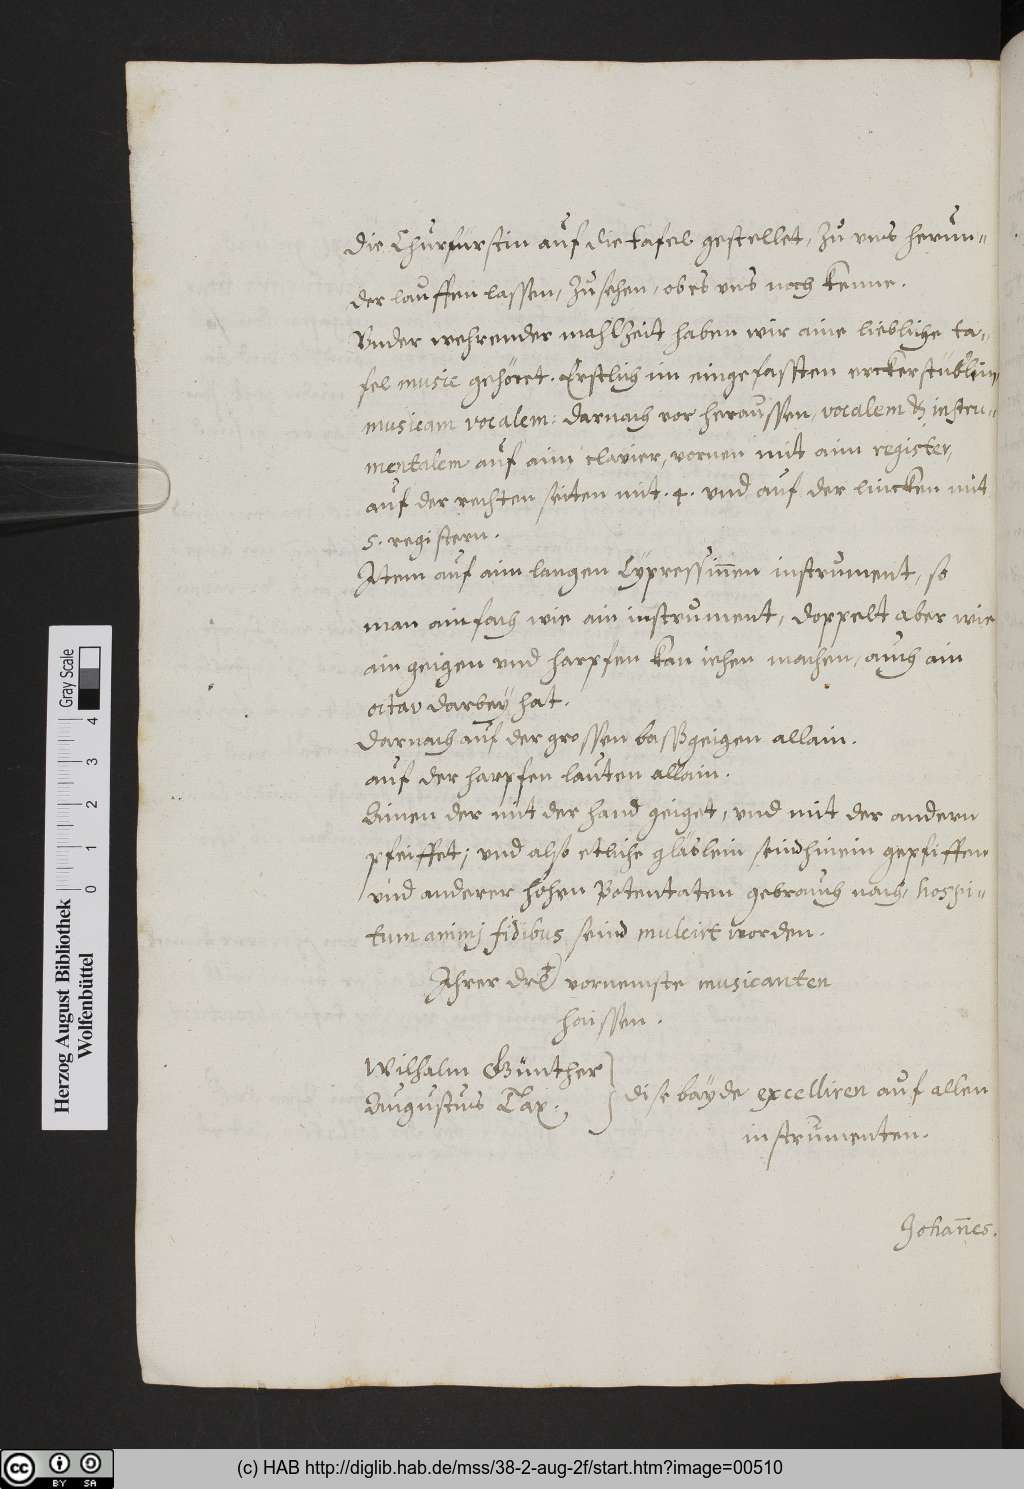 die Churfürstin auf die tafel gestellet, zu uns herun-
der lauffen lassen, zusehen, ob es uns noch kenne.
Under wehrender mahlzeit haben wir aine liebliche ta-
fel music gehöret. Erstlich im eingefassten erckerstüblin,
musicam vocalem: darnach vor heraussen, vocalem & instru-
mentalem auf aim clavier, vornen mit aim register,
auf der rechten seiten mit .4. und auf der lincken mit
5. registern.
Item auf aim langen Cypressinen instrument, so
man ainfach wie ain instrument, doppelt aber wie
ain geigen und harpfen kan machen, auch ain
octav darbey hat.
Darnach auf der grossen bassgeigen allain.
auf der harpfen lauten allain.
Ainen der mit der hand geiget, und mit der andern
pfeiffet; und also etliche gläslein seind hinein gepfiffen
und anderer hohen Potentaten gebrauch nach, hospi-
tum animj fidibus seind mulcirt worden.
Ihrer vornemste musicanten
haissen.
Wilhalm Günther
Augustus Tax.
dise bayde excelliren auf allen
instrumenten.
Johañes.
Herzog August Bibliothek
Wolfenbüttel
Gray Scale
0 1 2 3 4
cc BY SA
(c) HAB http://diglib.hab.de/mss/38-2-aug-2f/start.htm?image=00510